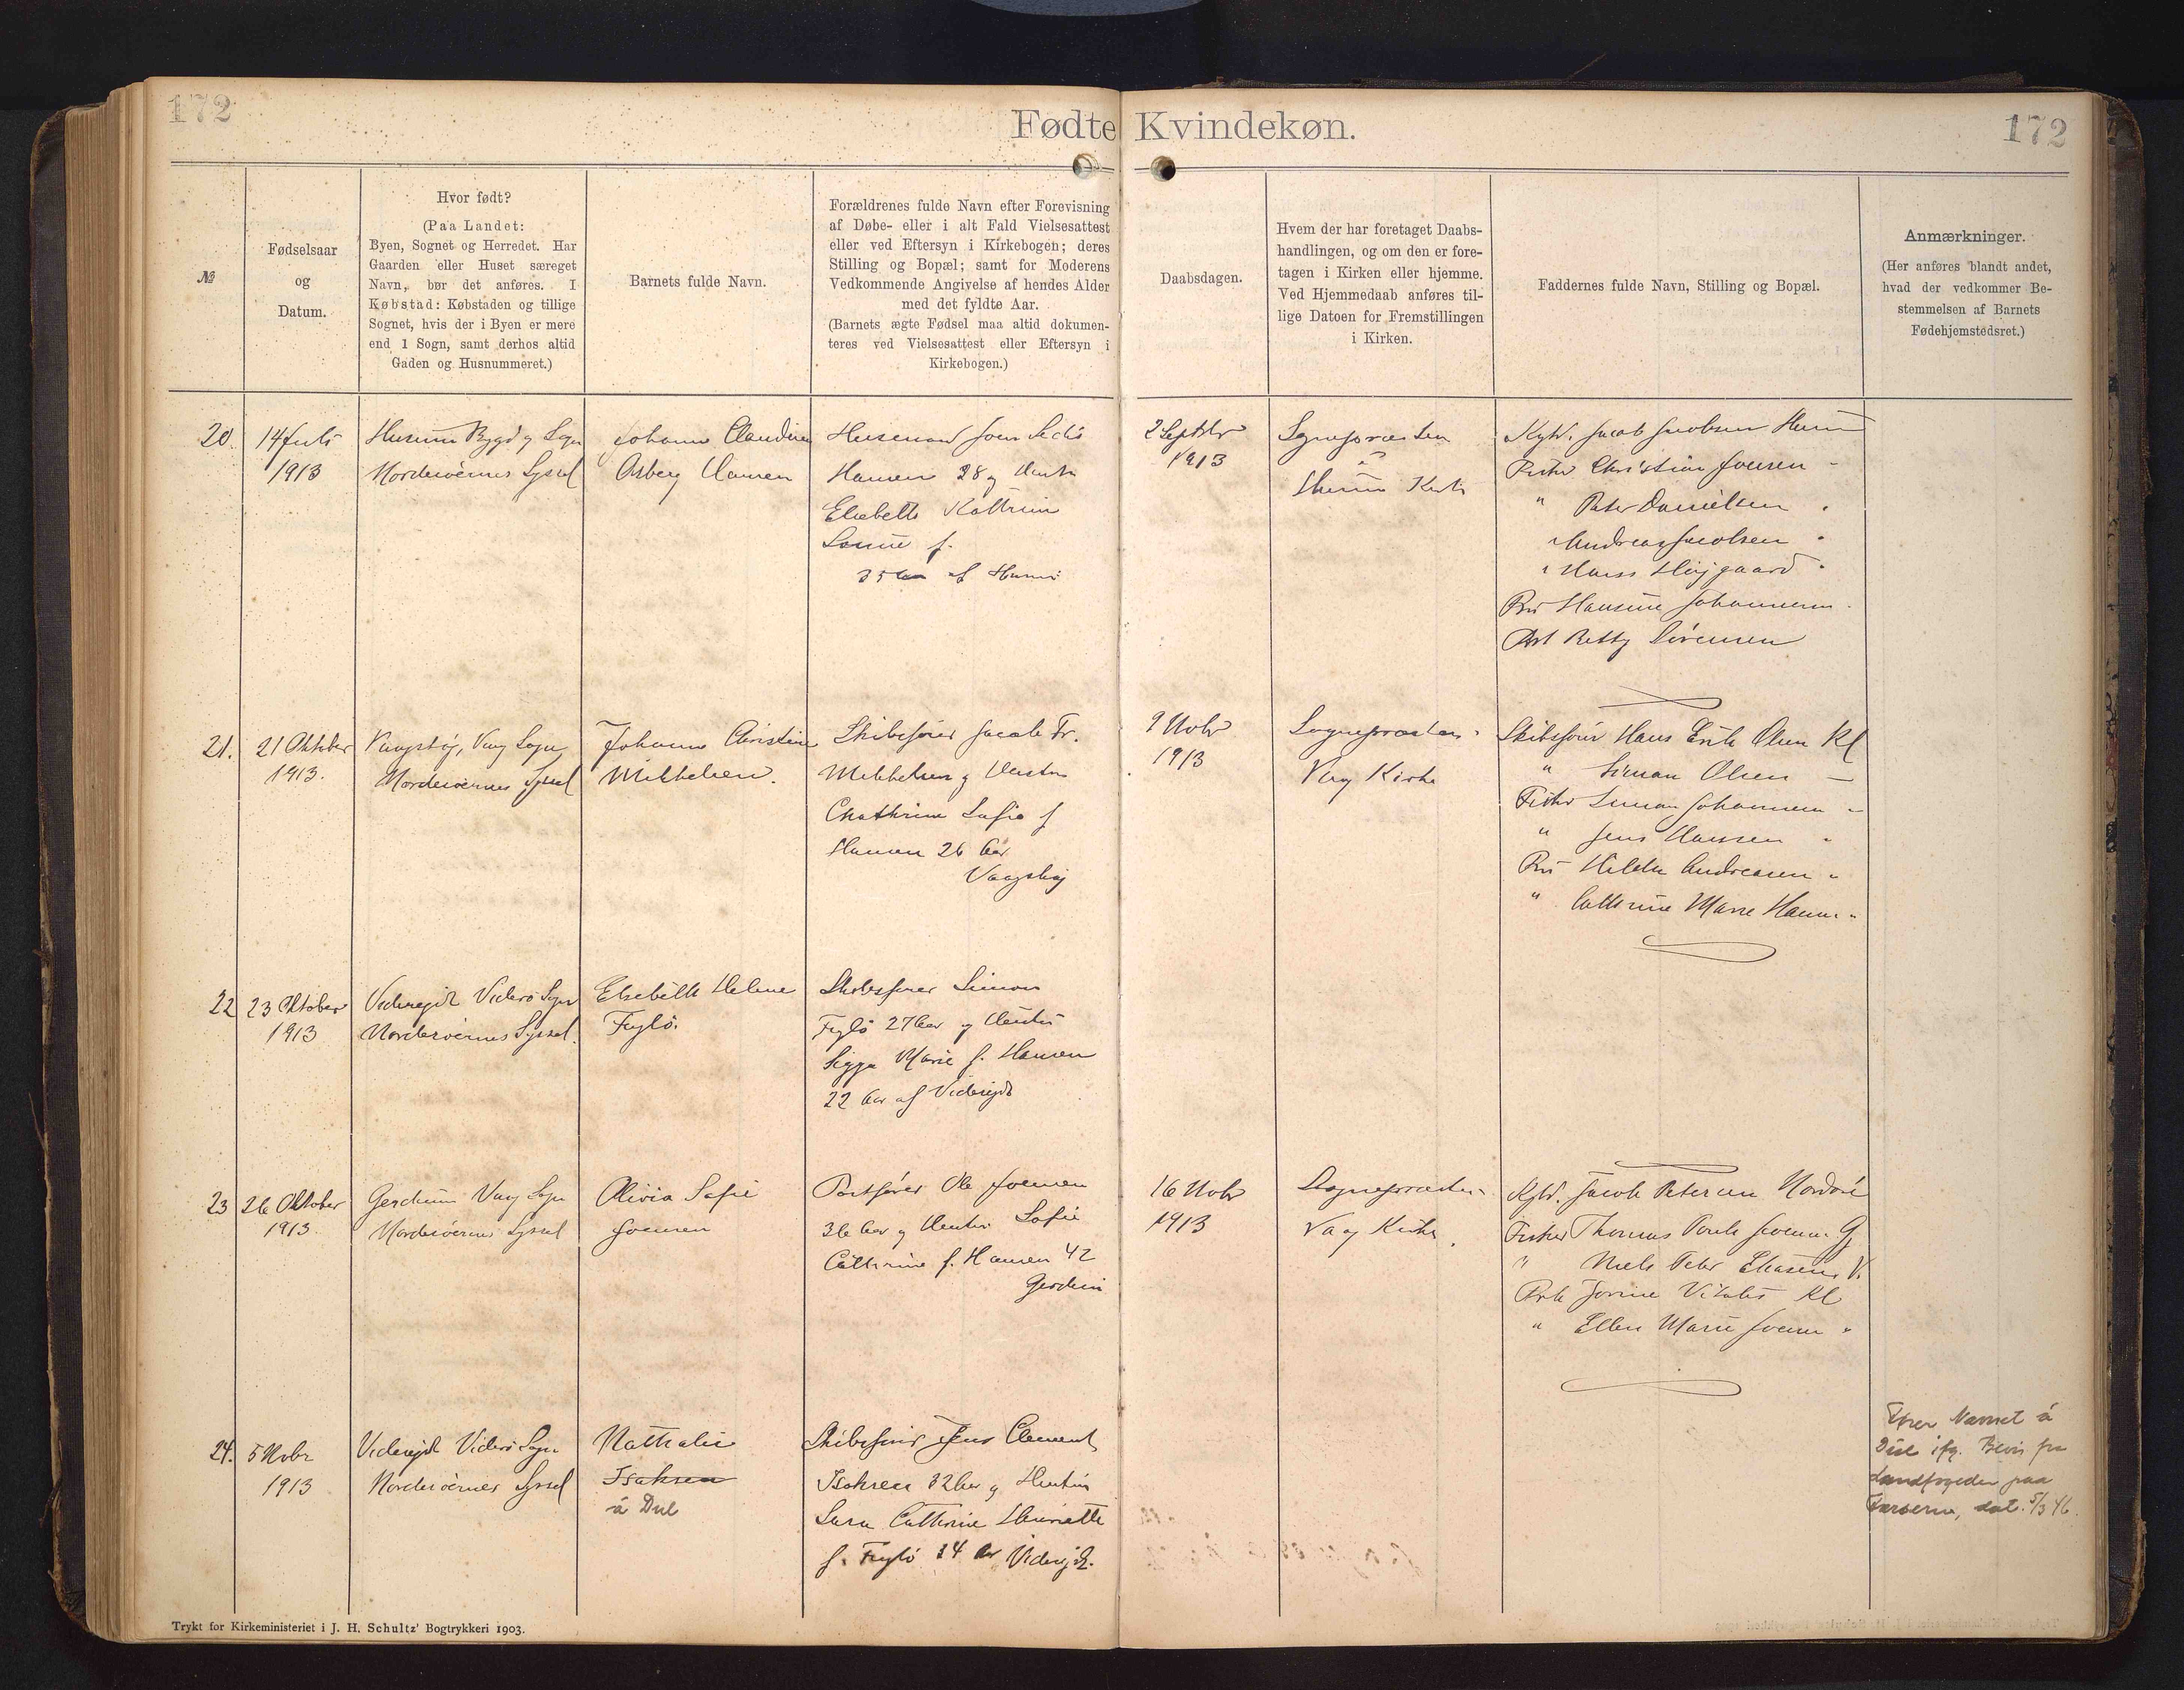 172
Fødte Kvindekøn.
172
№
Fødselsaar
og
Datum.
Hvor født?
(Paa Landet:
Byen, Sognet og Herredet. Har
Gaarden eller Huset særeget
Navn, bør det anføres. I
Købstad: Købstaden og tillige
Sognet, hvis der i Byen er mere
end 1 Sogn, samt derhos altid
Gaden og Husnummeret.)
Barnets fulde Navn.
Forældrenes fulde Navn efter Forevisning
af Døbe- eller i alt Fald Vielsesattest
eller ved Eftersyn i Kirkebogen; deres
Stilling og Bopæl; samt for Moderens
Vedkommende Angivelse af hendes Alder
med det fyldte Aar.
(Barnets ægte Fødsel maa altid dokumen-
teres ved Vielsesattest eller Eftersyn i
Kirkebogen.)
Daabsdagen.
Hvem der har foretaget Daabs-
handlingen, og om den er fore-
tagen i Kirken eller hjemme.
Ved Hjemmedaab anføres til-
lige Datoen for Fremstillingen
i Kirken.
Faddernes fulde Navn, Stilling og Bopæl.
Anmærkninger.
(Her anføres blandt andet,
hvad der vedkommer Be-
stemmelsen af Barnets
Fødehjemstedsret.)
20.
14 Juli
1913
Husum Bygd og Sogn
Norderøernes Syssel
Johanne Claudine
Hansen
Hansen 28 og Hustru
Elsebeth Kathrine
f.
35 Aar af Husum
2 Septbr
1913
Sognepræsten
i
Husum Kirke
Kgbd. Jacob Jacobsen Husum
Fisker Christian Joensen "
" Peter Danielsen "
" Andreas Jacobsen "
" Hans Højgaard "
Pig Hansine Johannesen "
Betty Sørensen
21.
21 Oktober
1913.
Vaagshøj, Vaag Sogn
Norderøernes Syssel
Johanne Christine
Mikkelsen.
Skibsfører Jacob Fr.
Mikkelsen og Hustru
Chathrine Sofie f
Hansen 26 Aar
Vaagshøj
9 Novbr
1913
Sognepræsten
Vaag Kirke
Skibsfører Hans Erik Olsen Kl
" Simon Olsen —
Fisker Simon Johannesen "
" Jens Hansen "
Pig Hilda Andreasen "
" Cathrine Marie Hansen "
22
23 Oktober
1913
Videregde Viderø Sogn
Norderøernes Syssel.
Elsebeth Helene
Fuglø.
Skibsfører Simon
Fuglø 27 Aar og Hustru
Sigga Marie f. Hansen
22 Aar af Videregde
23
26 Oktober
1913.
Gerdum Vaag Sogn
Norderøernes Syssel
Olivia Sofie
Joensen
Postfører Ole Joensen
36 Aar og Hustru Sofie
Cathrine f. Hansen 42
Gerdum
16 Novbr
1913
Sognepræsten
Vaag Kirke
Kgbd. Jacob Petersen Nordøre
Fisker Thomas Poule Joensen G
" Niels Peter Eliasen V.
Jorine Kl
" Ellen Marie Joensen "
24.
5 Novbr
1913
Videregde Viderø Sogn
Norderøernes Syssel
Nathalie
Isaksen
á Dul
Skibsfører Jens Clement
Isaksen 32 Aar og Hustru
Sara Cathrine Henriette
f. Fuglø 34 Aar Videregde.
Fører Navnet á
Dul ifg. Bevis fra
Landfogeden paa
Færøerne, dat. 5/3 46.
Trykt for Kirkeministeriet i J. H. Schultz' Bogtrykkeri 1903.